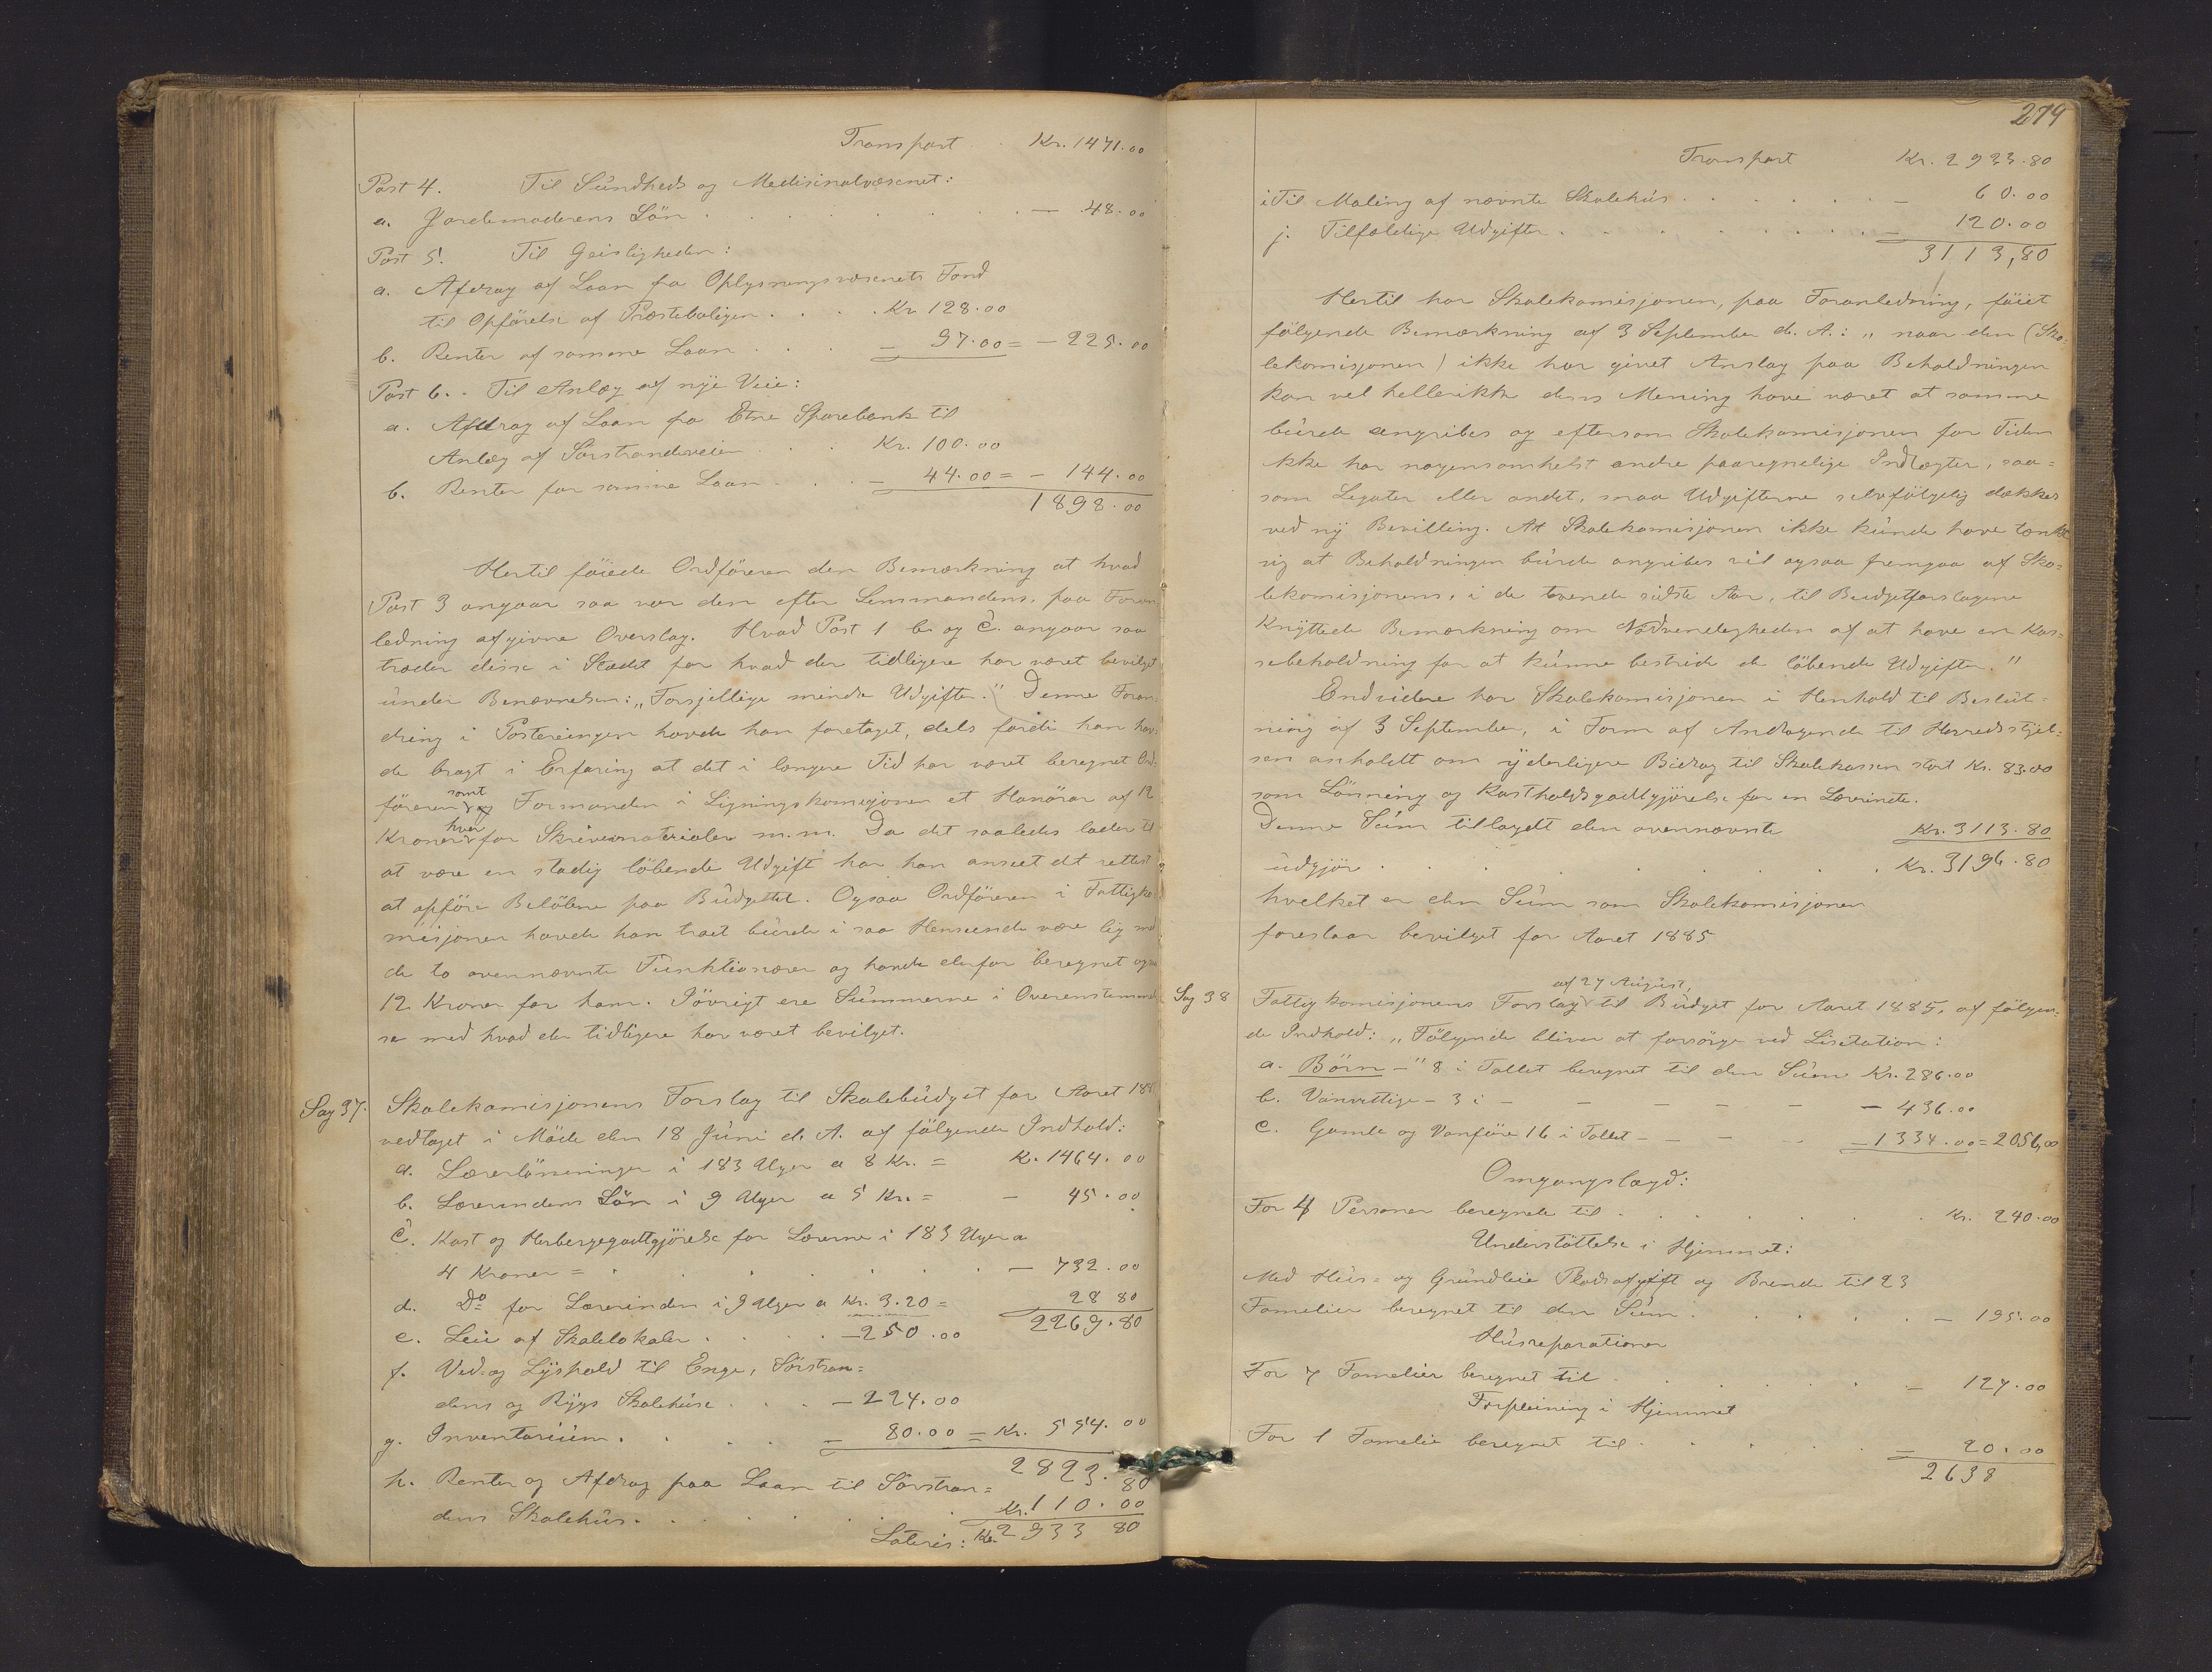 Transport . . Kr. 1471.00
Post 4. Til Sundheds og Medisinalvæsenet:
a. Jordemoderens Lön . . . . . . . — 48.00
Post 5. Til Geistligheden:
a. Afdrag af Laan fra Oplysningsvæsenets Fond
til Opförelse af Præsteboligen . . . . Kr 128.00
b. Renter af samme Laan . . . — 97.00 = — 225.00
Post 6. . Til Anlæg af nye Veie:
a. Afdrag af Laan fra Etne Sparebank til
Anlæg af Sörstrandsveien . . Kr. 100.00
b. Renter for samme Laan . . . — 44.00 = — 144.00
1898.00
Hertil föiede Ordföreren den Bemærkning at hvad
Post 3 angaar saa var den efter Lensmandens, paa Foran
ledning afgivne Overslag. Hvad Post 1 b. og c. angaar saa
træder disse i Stedet for hvad der tidligere har været bevilget
under Benævnelsen: „Forsjellige mindre Udgifter." Denne Foran-
dring i Posteringen havde han foretaget, dels fordi han hav-
de bragt i Erfaring at det i længere Tid har været beregnet Ord-
föreren samt Formanden i Ligningskomisjonen et Honörar af 12
Kroner hver for Skrivematerialer m.m. Da det saaledes lader til
at være en stadig löbende Udgift har han anseet det rettest
at opföre Belöbene paa Budgettet. Ogsaa Ordföreren i Fattigko-
misjonen havde han troet burde i saa Henseende være lig med
de to ovennævnte Funktionærer og havde derfor beregnet ogsaa
12 Kroner for ham. Iövrigt ere Summerne i Overenstemmel
se med hvad der tidligere har været bevilget.
Sag 37. Skolekomisjonens Forslag til Skolebudget for Aaret 188
vedtaget i Möde den 18 Juni d. A. af fölgende Indhold:
a. Lærerlönninger i 183 Uger a 8 Kr. = K. 1464.00
b. Lærerindens Lön i 9 Uger a 5 Kr. = — 45.00
c. Kost og Herbergegodtgjörelse for Lærerne i 183 Uger a
4 Kroner = . . . . . . — 732.00
d. Do for Lærerinden i 9 Uger a Kr. 3.20 = 28 80
e. Leie af Skolelokaler . . . . — 250.00 2269.80
f. Ved- og Lyshold til Enge, Sörstran=
dens og Rygs Skolehuse . . . — 224.00
g. Inventarium . . . . — 80.00 = Kr. 554.00
2823.80
h. Renter og Afdrag paa Laan til Sörstran=
dens Skolehus . . . . . . . Kr. 110.00
Lateris: Kr. 2933 80
279
Transport Kr. 2933.80
i Til Maling af nævnte Skolehus . . . . . . — 60.00
j. Tilfældige Udgifter . . . . . . . . — 120.00
3113,80
Hertil har Skolekomisjonen, paa Foranledning, föiet
fölgende Bemærkning af 3 September d. A.: „naar den (Sko-
lekomisjonen) ikke har givet Anslag paa Beholdningen
kan vel hellerikke dens Mening have været at samme
burde angribes og eftersom Skolekomisjonen for Tiden
ikke har nogensomhelst andre paaregnelige Indtægter, saa=
som Legater eller andet, maa Udgifterne selvfölgelig dækkes
ved ny Bevilling. At Skolekomisjonen ikke kunde have tænkt
sig at Beholdningen burde angribes vil ogsaa fremgaa af Sko=
lekomisjonens, i de tvende sidste Aar, til Budgetforslagene
Knyttede Bemærkning om Nödvendigheden af at have en Kas-
sebeholdning for at kunne bestride de löbende Udgifter."
Endvidere har Skolekomisjonen i Henhold til Beslut=
ning af 3 September, i Form af Andragende til Herredsstyel=
sen anholdt om yderligere Bidrag til Skolekassen stort Kr. 83.00
som Lönning og Kostholdsgodtgjörelse for en Lærerinde.
Denne Sum tillagdt den ovennævnte Kr. 3113.80
udgjör . . . . . . . . Kr. 3196.80
hvelket er den Sum som Skolekomisjonen
foreslaar bevilget for Aaret 1885
Sag 38 Fattigkomisjonens Forslag af 27 August, til Budget for Aaret 1885, af fölgen-
de Indhold: „Fölgende bliver at forsörge ved Lisitation:
a. Börn — " 8 i Tallet beregnet til den Sum Kr. 286.00
b. Vanvittige — 3 i — — — — — — 436.00
c. Gamle og Vanföre 16 i Tallet — — — — 1334.00 = 2056,00
Omgangslægd:
For 4 Personer beregnede til . . . . . . . Kr. 240.00
Understöttelse i Hjemmet:
Med Hus= og Grundleie Pladsafgift og Brende til 23
Familier beregnet til den Sum . . . . . — 195.00
Husreparationer
For 7 Familier beregnet til . . . . . . — 127.00
Forpleining i Hjemmet
For 1 Familie beregnet til . . . . . — 20.00
2638